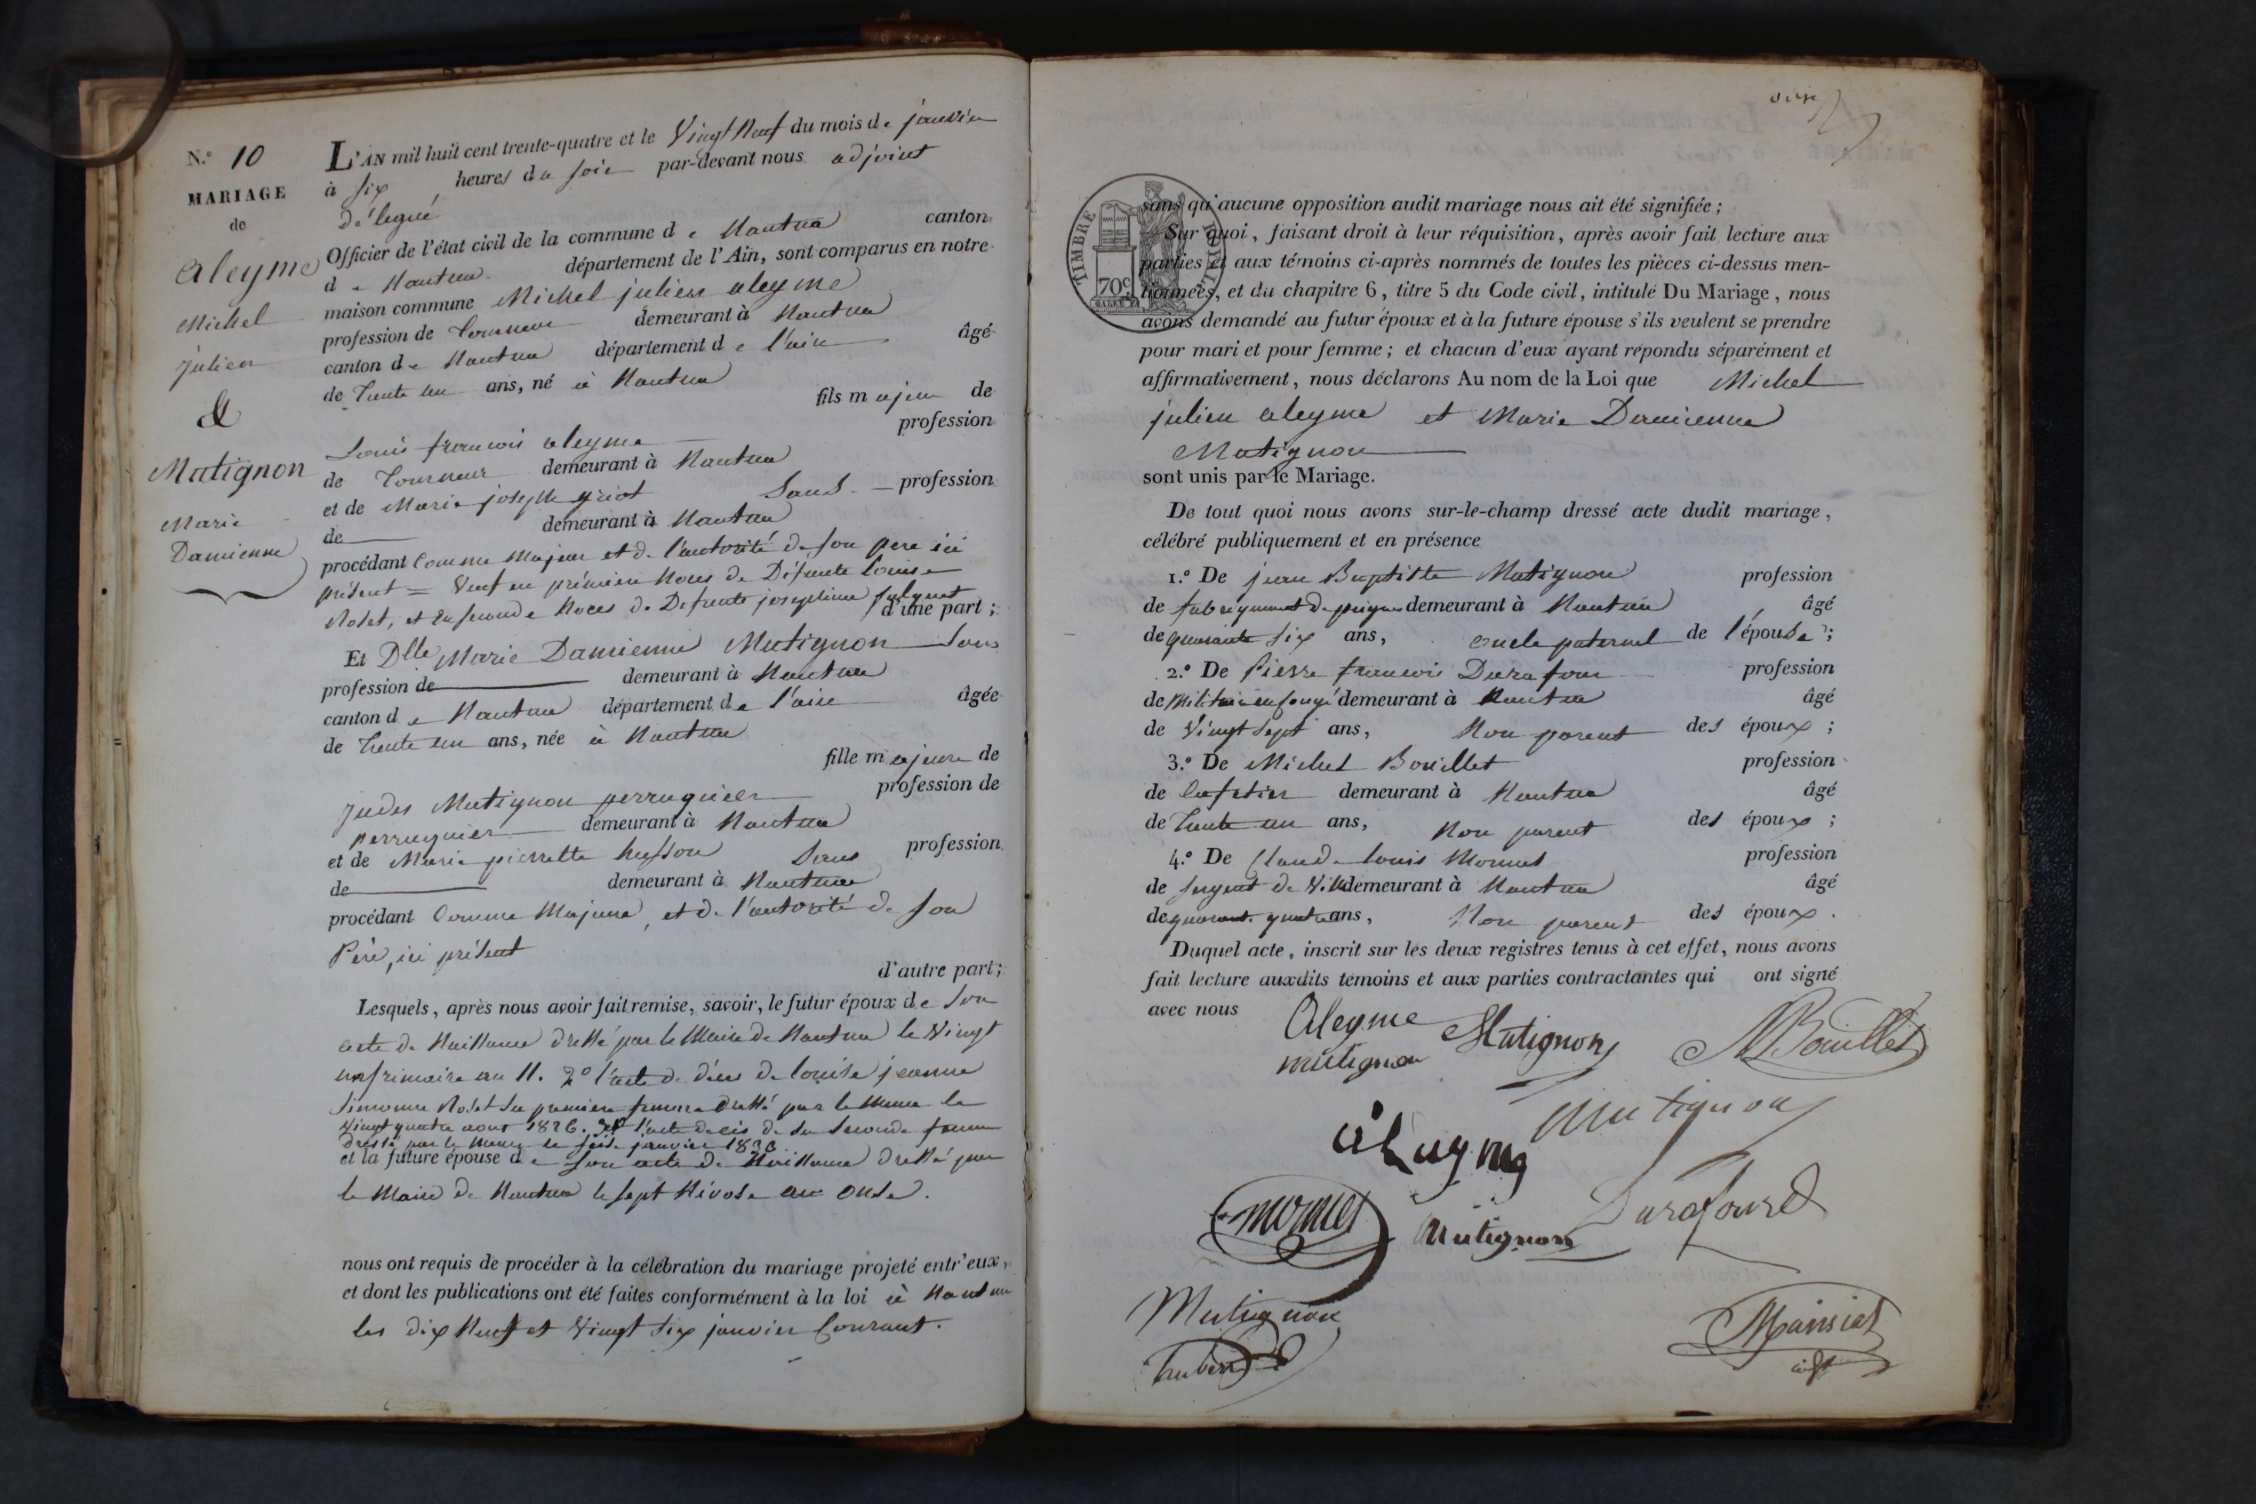 N.° 10
MARIAGE
de
Aleyme
Michel
Julien
&
Mutignon
Marie
Damienne
L'AN mil huit cent trente-quatre et le Vingt Neuf du mois de janvier
à Six heures du soir par-devant nous adjoint
délégué
Officier de l'état civil de la commune de Nantua canton
de Nantua département de l'Ain, sont comparus en notre
maison commune Michel julien aleyme
profession de Tourneur demeurant à Nantua
canton de Nantua département de l'ain âgé
de trente un ans, né à Nantua
fils majeur de
Louis françois aleyme profession
de Tourneur demeurant à Nantua
et de Marie joseph griot Sans profession
de demeurant à Nantua
procédant Comme Majeur et de l'autorité de son pere ici
présent = Veuf en première Noces de Défunte Louise
Rolet, et en seconde Noces de Defunte josephine
d'une part ;
Et Dlle Marie Damienne Mutignon Sans
profession de demeurant à Nantua
canton de Nantua département de l'ain âgée
de trente un ans, née à Nantua
fille majeure de
Judes Mutignon perruquier profession de
perruquier demeurant à Nantua
et de Marie pierrette husson Sans profession
de demeurant à Nantua
procédant Comme Majeure, et de l'autorité de son
Père, ici présent
d'autre part ;
Lesquels, après nous avoir fait remise, savoir, le futur époux de son
acte de Naissance dressé par le Maire de Nantua le Vingt
un frimaire an 11. 2° l'acte de décès de louise jeanne
Simonne Rolet sa premiere femme dressé par le Maire le
vingt quatre aout 1826. 3° l'acte de décès de sa seconde femme
dressé par le Maire le seize janvier 1830
et la future épouse de son acte de Naissance dressé par
le Maire de Nantua le sept Nivose an onse.
nous ont requis de procéder à la célébration du mariage projeté entr'eux,
et dont les publications ont été faites conformément à la loi à Nantua
les dix Neuf et vingt six janvier Courant.
TIMBRE ROYAL
70c
sans qu'aucune opposition audit mariage nous ait été signifiée ;
Sur quoi, faisant droit à leur réquisition, après avoir fait lecture aux
parties et aux témoins ci-après nommés de toutes les pièces ci-dessus men-
tionnées, et du chapitre 6, titre 5 du Code civil, intitulé Du Mariage, nous
avons demandé au futur époux et à la future épouse s'ils veulent se prendre
pour mari et pour femme ; et chacun d'eux ayant répondu séparément et
affirmativement, nous déclarons Au nom de la Loi que Michel
julien aleyme et Marie Damienne
Mutignon
sont unis par le Mariage.
De tout quoi nous avons sur-le-champ dressé acte dudit mariage,
célébré publiquement et en présence
1.° De jean Baptiste Mutignon profession
de fabriquant de peignes demeurant à Nantua âgé
de quarante six ans, oncle paternel de l'épouse ;
2.° De Pierre françois Durafour profession
de Militaire en congé demeurant à Nantua âgé
de Vingt sept ans, Non parent des époux ;
3.° De Michel Bouillet profession
de Cafetier demeurant à Nantua âgé
de trente un ans, Non parent des époux ;
4.° De Claude louis Mornet profession
de sergent de Ville demeurant à Nantua âgé
de quarante quatre ans, Non parent des époux.
Duquel acte, inscrit sur les deux registres tenus à cet effet, nous avons
fait lecture auxdits temoins et aux parties contractantes qui ont signé
avec nous
Aleyme Mutignon MBouillet
mutignon
Mutignon
aleyme
mornet Mutignon Durafourd
Mutignon
Mansiat